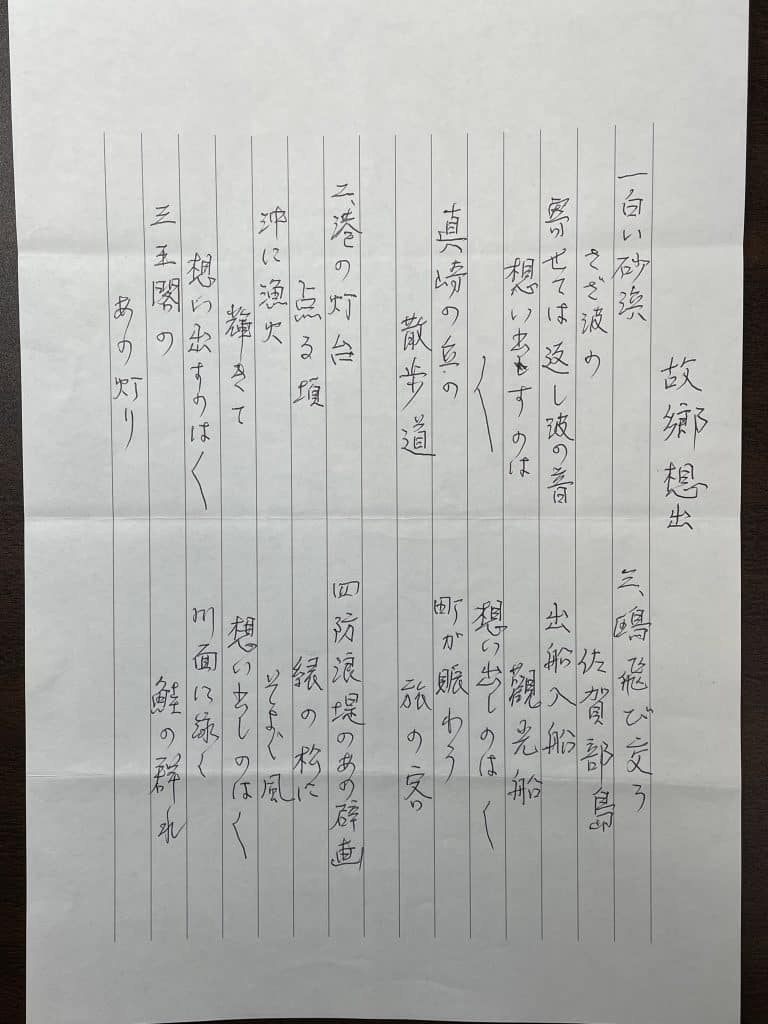 故郷想出
一白い砂浜
さざ波の
寄せては返し波の音
想い出すのは
〱
真崎の兵の
散歩道
二、港の灯台
点る頃
沖に漁火
輝きて
想い出すのは〱
三王閣の
あの灯り
三、鴎飛び交う
佐賀部島
出船入船
観光船
想い出しのは〱
町が賑わう
旅の客
四防浪堤のあの壁画
緑の松に
そよぐ風
想い出しのは〱
川面に泳ぐ
鮭の群れ